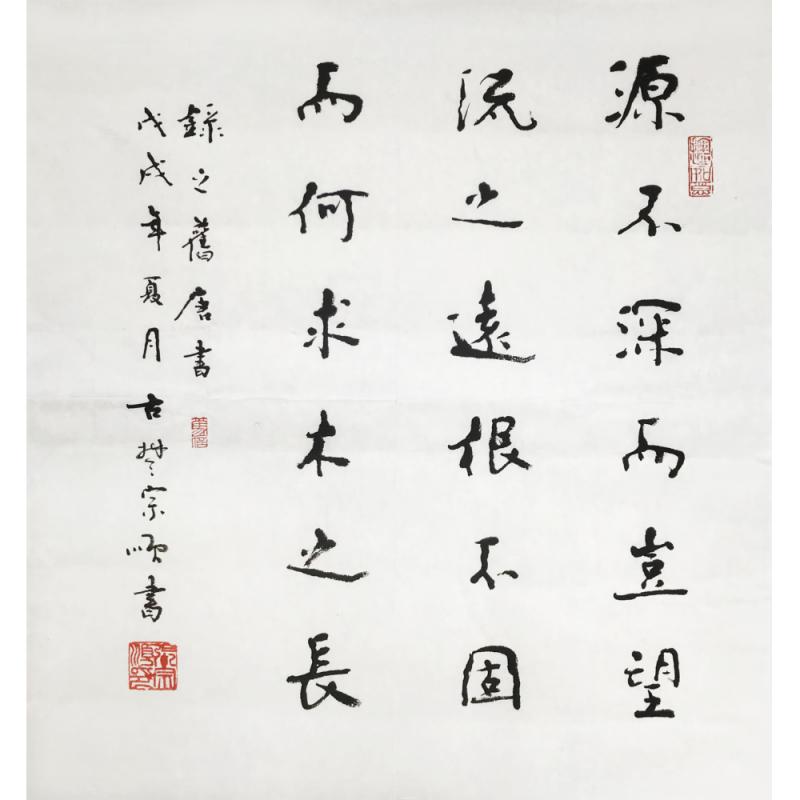 源不深而豈望
流之遠根不固
而何求木之長
録之舊唐書
戊戌年夏月古楚宗順書